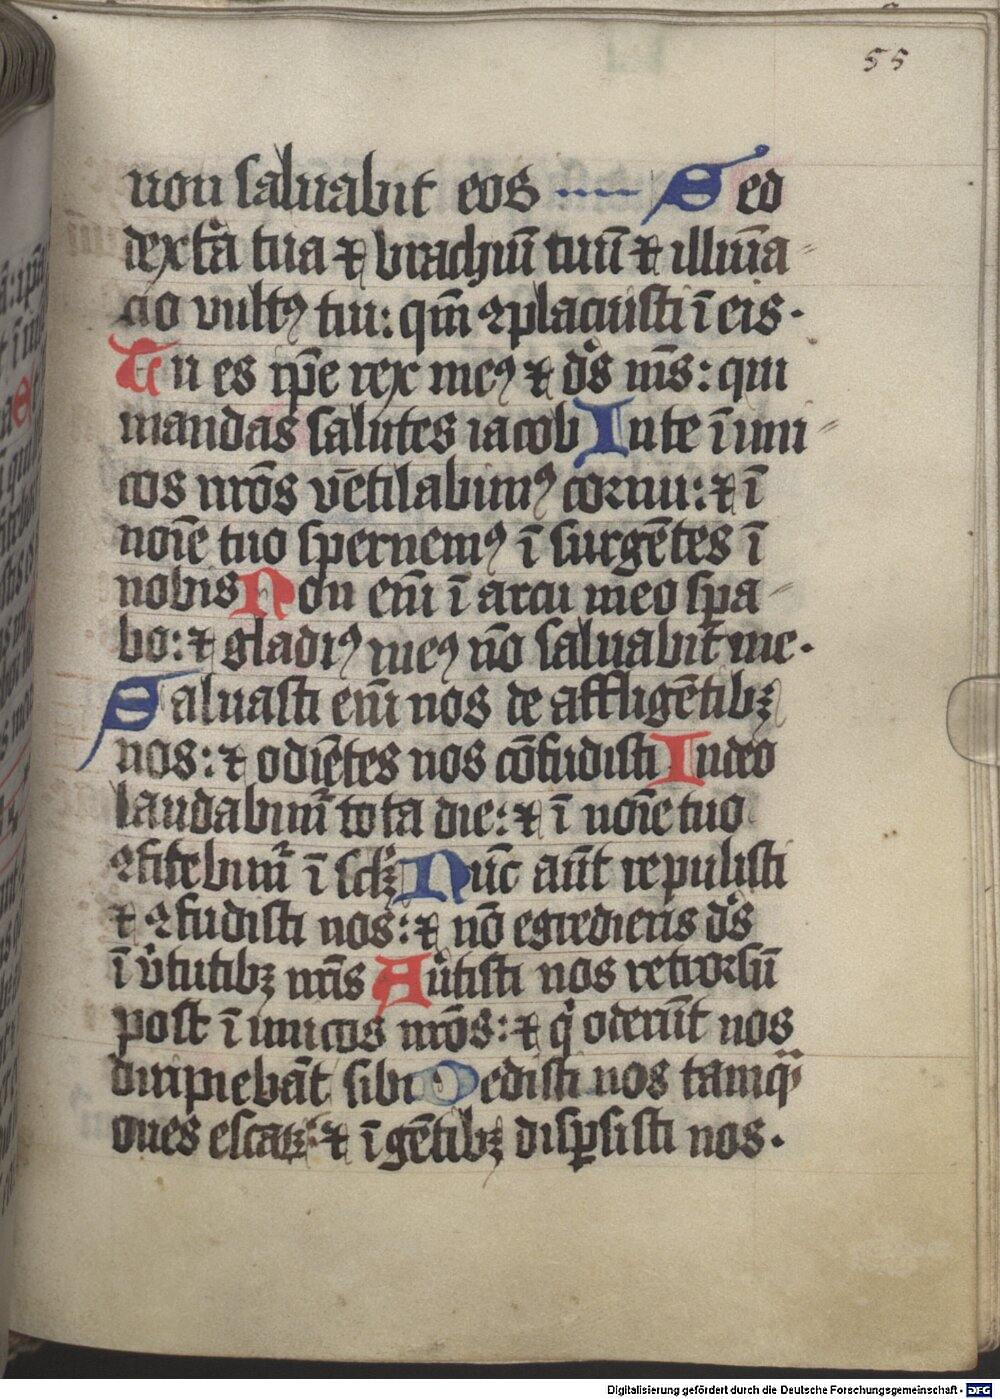 55
non saluabit eos Sed
dext̾a tua ⁊ brachiū tuū ⁊ illuīa⸗
cio vultꝰ tui: qm̄ ꝯplacuisti ī eis·
Tu es ip̄e rex meꝰ ⁊ d̄s m̄s: qui
mandas salutes iacob In te īimi⸗
cos nr̄os vētilabimꝰ cornu: ⁊ ī
noīe tuo spernemꝰ īsurgētes ī
nobis Non eī ī arcu meo sp̄a⸗
bo: ⁊ gladiꝰ meꝰ nō saluabit me·
Saluasti eī nos de affligētibꝫ
nos: ⁊ odiētes nos cōfudisti In deo
laudabim̄ tota die: ⁊ ī noīe tuo
ꝯfitebim̄ ī sclꝫ Nūc aūt repulisti
⁊ ꝯfudisti nos: ⁊ nō egredieris d̄s
ī v̾tutibꝫ nr̄is Au̾tisti nos retrorsū
post īimicos nr̄os: ⁊ qͥ oderūt nos
diripiebāt sibi Dedisti nos tamqͣ̄
oues escaꝝ: ⁊ ī gētibꝫ disꝑsisti nos·
Digitalisierung gefördert durch die Deutsche Forschungsgemeinschaft - DFG